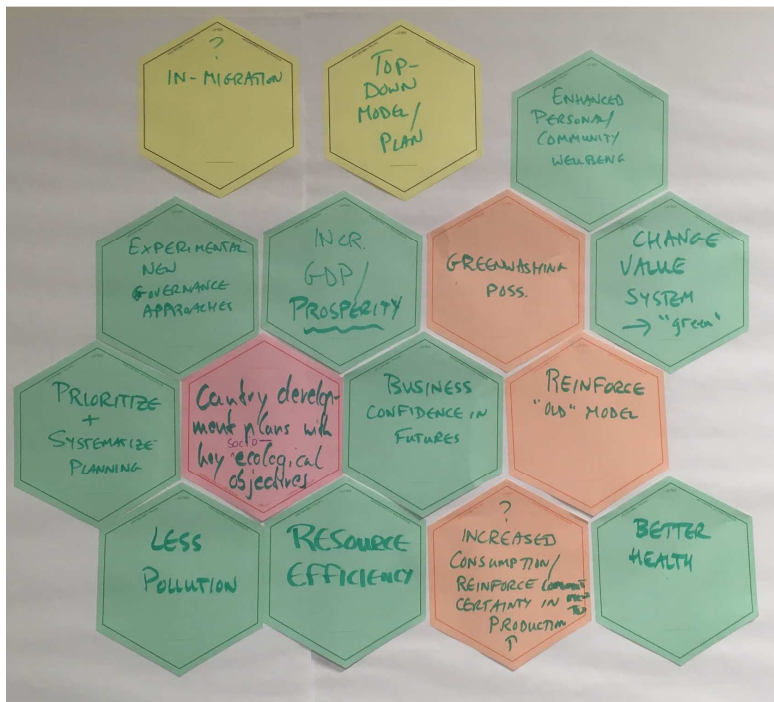 ?
IN-MIGRATION
TOP-
DOWN
MODEL/
PLAN
ENHANCED
PERSONAL/
COMMUNITY
WELLBEING
EXPERIMENTAL
NEW
GOVERNANCE
APPROACHES
INCR.
GDP/
PROSPERITY
GREENWASHING
POSS.
CHANGE
VALUE
SYSTEM
→ "green"
PRIORITIZE
+
SYSTEMATIZE
PLANNING
Country develop-
ment plans with
socio-
key ecological
objectives
BUSINESS
CONFIDENCE IN
FUTURES
REINFORCE
"OLD" MODEL
LESS
POLLUTION
RESOURCE
EFFICIENCY
?
INCREASED
CONSUMPTION/
REINFORCE
CERTAINTY IN
PRODUCTION
↑
BETTER
HEALTH